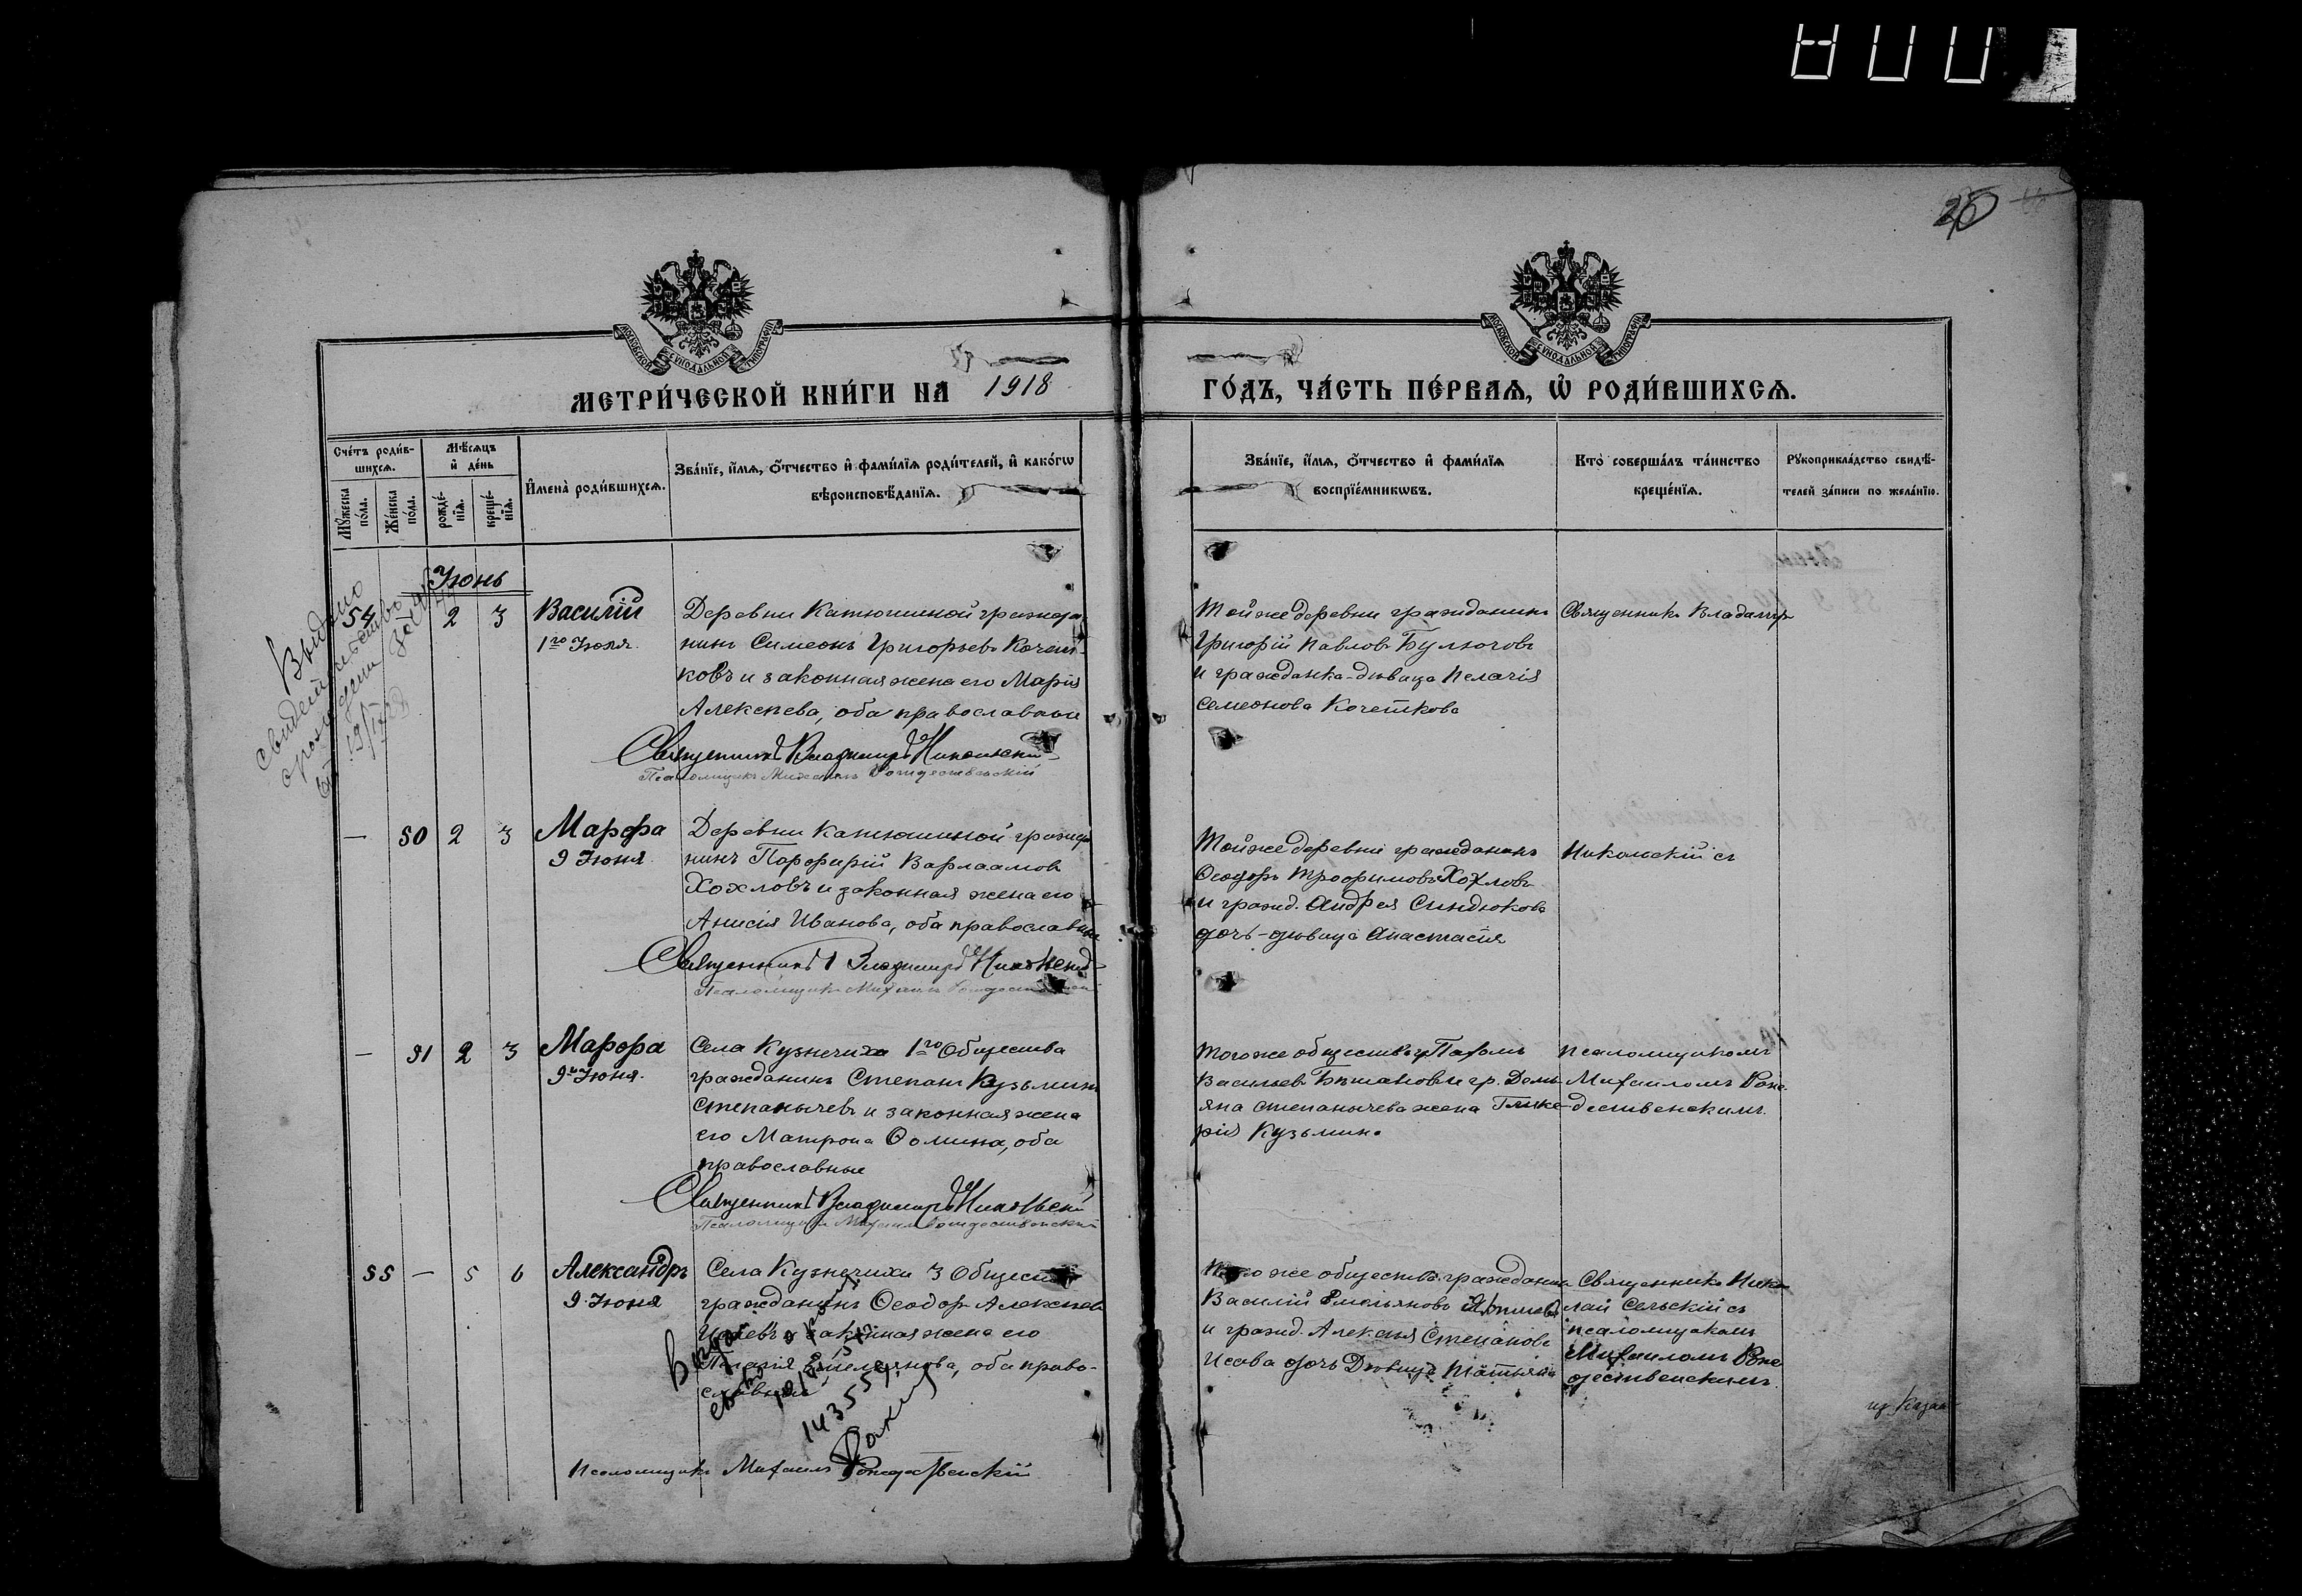 25
МОСКОВСКОЙ СѴНОДАЛЬНОЙ ТИПОГРАФІИ
МОСКОВСКОЙ СѴНОДАЛЬНОЙ ТИПОГРАФІИ
МЕТРИ́ЧЕСКОЙ КНИ́ГИ НА 1918 ГО́ДЪ, ЧА́СТЬ ПЕ́РВАѦ, Ѡ҆ РОДИ́ВШИХСѦ.
Сче́тъ роди́в-
шихсѧ.
Мѣ́сѧцъ
и҆ де́нь
И҆мена̀ роди́вшихсѧ.
Зва́нїе, и҆́мѧ, ѻ҆́тчество и҆ фами́лїѧ роди́телей, и҆ како́гѡ
вѣроисповѣ́данїѧ.
Мꙋ́жеска по́ла.
Же́нска по́ла.
рожде́-
нїѧ.
креще́-
нїѧ.
Зва́нїе, и҆́мѧ, ѻ҆́тчество и҆ фами́лїѧ
воспрїе́мникѡвъ.
Кто̀ соверша́лъ та́инство
креще́нїѧ.
Рꙋкоприкла́дство свидѣ́-
телей за́писи по жела́нїю.
Выдано
свидетельство
о рождении
Іюнь
54 2 3 Василій
1го Іюня.
Деревни Катюшиной гражда
нинъ Симеонъ Григорьевъ Кочет-
ковъ и законная жена его Марія
Алексеева, оба православные
Священникъ Владимиръ Никольскій
Псаломщикъ Михаилъ Рождественскій
Той же деревни гражданинъ
Григорій Павловъ Булычовъ
и гражданка-дѣвица Пелагія
Семеонова Кочеткова
Священникъ Владимиръ
— 50 2 3 Марѳа
9 Іюня
Деревни Катюшиной гражда
нинъ Порфирій Варлаамов
Хохловъ и законная жена его
Анисія Иванова, оба православные
Священникъ Владимиръ Никольскій
Псаломщикъ Михаилъ Рождественскій
Той же деревни гражданинъ
Ѳеодоръ Трофимовъ Хохловъ
и гражд. Андрея Синдюкова
дочь-дѣвица Анастасія
Никольскій съ
— 51 2 3 Марѳа
9го Іюня.
Села Кузнечиха 1го Общества
гражданинъ Степанъ Кузьминъ
Степанычевъ и законная жена
его Матрона Ѳомина, оба
православные
Священникъ Владимиръ Никольскій
Псаломщикъ Михаилъ Рождественскій
Того же общества гр. Пахомъ
Васильев и гр. Демь-
яна Степанычева жена Глике-
рія Кузьмина
псаломщикомъ
Михаиломъ Рож-
дественскимъ.
55 — 5 6 Александръ
9 Іюня
Села Кузнечиха 3 Общества
гражданинъ Ѳеодоръ Алексеев
и законная жена его
Пелагія Емельянова, оба право-
славные
Выдано
143559
Псаломщикъ Михаилъ Рождественскій
Того же общества гражданин
Василій Емельяновъ
и гражд. Алексея Степанова
Исаева дочь Дѣвица Татьяна
Священникъ Нико-
лай Сельскій съ
псаломщикомъ
Михаиломъ Рож-
дественскимъ.